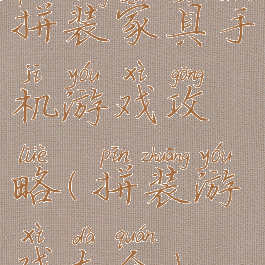 拼装家具手
jī yóu xì gōng
机游戏攻
lüè pīn zhuāng yóu
略(拼装游
xì dà quán
戏大全)